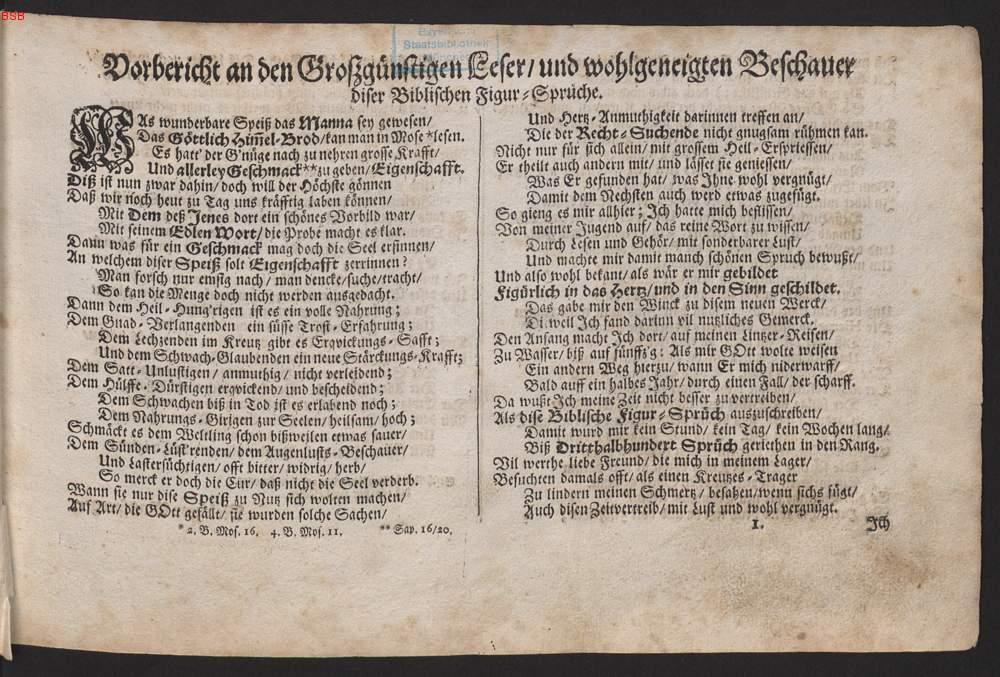 BSB
Staatsbibliothek
Vorbericht an den Großgünstigen Leser/ und wohlgeneigten Beschauer
diser Biblischen Figur-Sprüche.
WAs wunderbare Speiß das Manna sey gewesen/
Das Göttlich Him̃el-Brod/ kan man in Mose *lesen.
Es hatt' der G'nüge nach zu nehren grosse Krafft/
Und allerley Geschmack** zu geben/ Eigenschafft.
Diß ist nun zwar dahin/ doch will der Höchste gönnen
Daß wir noch heut zu Tag uns kräfftig laben können/
Mit Dem deß Jenes dort ein schönes Vorbild war/
Mit seinem Edlen Wort/ die Probe macht es klar.
Dann was für ein Geschmack mag doch die Seel ersinnen/
An welchem diser Speiß solt Eigenschafft zerrinnen?
Man forsch nur emsig nach/ man dencke/ suche/ tracht/
So kan die Menge doch nicht werden ausgedacht.
Dann dem Heil-Hung'rigen ist es ein volle Nahrung;
Dem Gnad-Verlangenden ein süsse Trost-Erfahrung;
Dem Lechzenden im Kreutz gibt es Erqvickungs-Safft;
Und dem Schwach-Glaubenden ein neue Stärckungs-Krafft;
Dem Satt-Unlustigen/ anmuthig/ nicht verleidend;
Dem Hülffe-Dürfftigen erqvickend/ und bescheidend;
Dem Schwachen biß in Tod ist es erlabend noch;
Dem Nahrungs-Girigen zur Seelen/ heilsam/ hoch;
Schmäckt es dem Weltling schon bißweilen etwas sauer/
Dem Sünden-Lüst'renden/ dem Augenlusts-Beschauer/
Und Lastersüchtigen/ offt bitter/ widrig/ herb/
So merck er doch die Cur/ daß nicht die Seel verderb.
Wann sie nur dise Speiß zu Nutz sich wolten machen/
Auf Art/ die GOtt gefällt/ sie wurden solche Sachen/
* 2. B. Mos. 16. 4. B. Mos. 11. ** Sap. 16/20.
Und Hertz-Anmuthigkeit darinnen treffen an/
Die der Recht-Suchende nicht gnugsam rühmen kan.
Nicht nur für sich allein/ mit grossem Heil-Erspriessen/
Er theilt auch andern mit/ und lässet sie geniessen/
Was Er gefunden hat/ was Ihne wohl vergnügt/
Damit dem Nechsten auch werd etwas zugefügt.
So gieng es mir allhier; Ich hatte mich beflissen/
Von meiner Jugend auf/ das reine Wort zu wissen/
Durch Lesen und Gehör/ mit sonderbarer Lust/
Und machte mir damit manch schönen Spruch bewußt/
Und also wohl bekant/ als wär er mir gebildet
Figürlich in das Hertz/ und in den Sinn geschildet.
Das gabe mir den Winck zu disem neuen Werck/
Di weil Ich fand darinn vil nutzliches Gemerck.
Den Anfang macht Ich dort/ auf meinen Lintzer-Reisen/
Zu Wasser/ biß auf fünffzg: Als mir GOtt wolte weisen
Ein andern Weg hierzu/ wann Er mich niderwarff/
Bald auff ein halbes Jahr/ durch einen Fall/ der scharff.
Da wußt Ich meine Zeit nicht besser zu vertreiben/
Als dise Biblische Figur-Sprüch auszuschreiben/
Damit wurd mir kein Stund/ kein Tag/ kein Wochen lang/
Biß Dritthalbhundert Sprüch geriethen in den Rang.
Vil werthe liebe Freund/ die mich in meinem Lager/
Besuchten damals offt/ als einen Kreutzes-Trager
Zu lindern meinen Schmertz/ besahen/ wenn sichs fügt/
Auch disen Zeitvertreib/ mit Lust und wohl vergnügt.
1. Ich